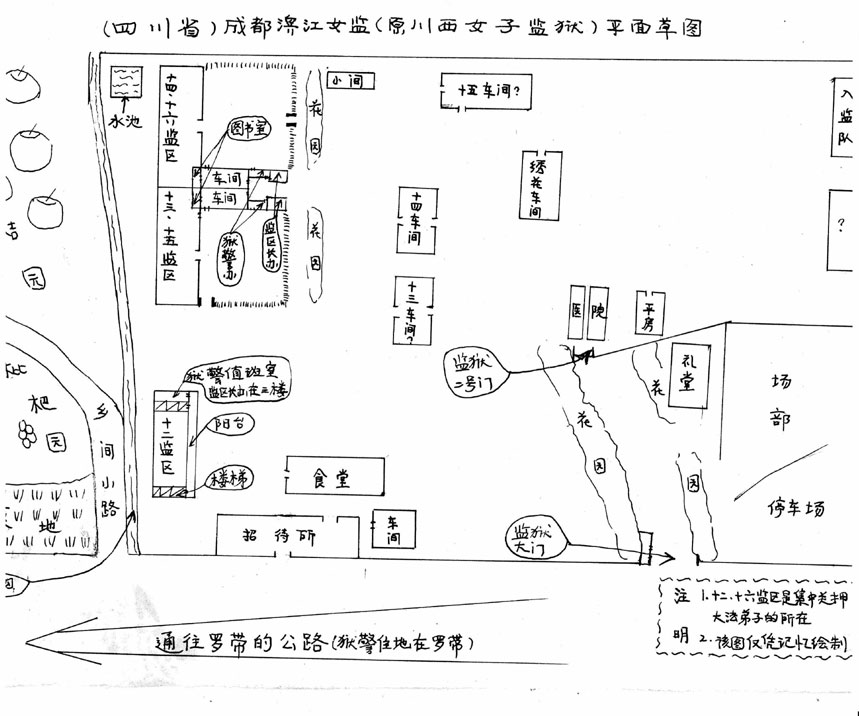 (四川省)成都濟江女监(原川西女子监狱)平面草图
水池
十四·十六监区
图书室
花园
小间
十五车间?
入监队
车间
车间
十三·十五监区
狱警办
监区长办
花园
十四车间
绣花车间
?
园
十三车间?
医院
平房
监狱二号门
礼堂
场部
花园
花
园
停车场
狱警值班室
监区长办在三楼
十二监区
阳台
楼梯
食堂
招待所
车间
监狱大门
枇杷园
地
乡间小路
注明
1.十二.十六监区是集中关押
大法弟子的所在
2.该图仅凭记忆绘制
通往罗带的公路(狱警住地在罗带)